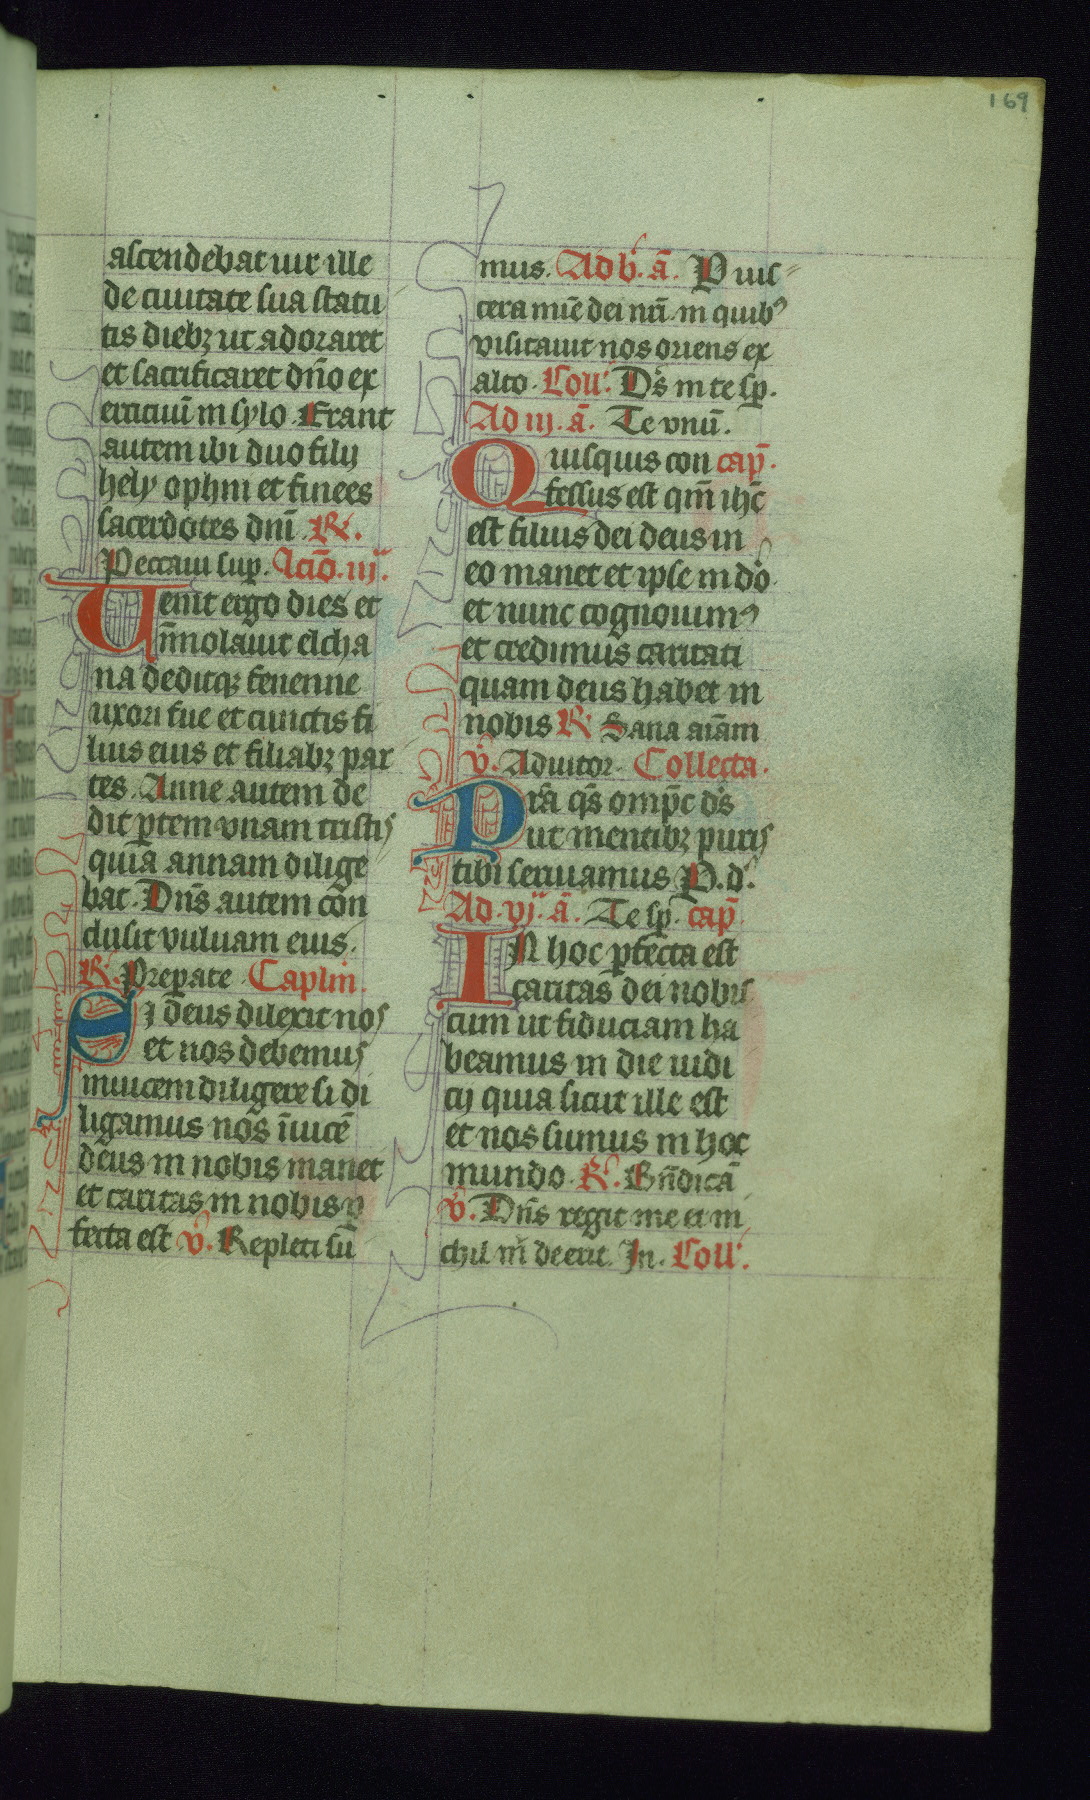 169
ascendebat uir ille
de ciuitate sua statu
tis dieb⁊ ut adoraret
et sacrificaret dn̄o ex
ercituū in sylo. Erant
autem ibi duo filij
hely ophni et finees
sacerdotes dn̄i. R.
Peccaui sup. lcīo. iij.
Uenit ergo dies et
īmolauit elcha
na deditq⁊ fenenne
uxori sue et cunctis fi
liis eius et filiab⁊ par
tes. Anne autem de
dit ꝑtem vnam tristis
quia annam dilige
bat. Dn̄s autem con
clusit vuluam eius.
R. Preparate Caplm.
Si deus dilexit nos
et nos debemus
inuicem diligere si di
ligamus nos īuicē
deus in nobis manet
et caritas in nobis ꝑ
fecta est v. Repleti su
mus. Ad b. ā. P uis
cera mīe dei nrī. in quibꝰ
visitauit nos oriens ex
alto. Coll. Ds in te sp.
Ad iij. ā. Te vnū.
Quisquis con cap.
fessus est qm̄ ihc̄
est filius dei deus in
eo manet et ipse in dō.
et nunc cognouimꝰ
et credimus caritati
quam deus habet in
nobis R Sana aīam
v. Adiutor. Collecta.
Pra qs omp̄c ds
ut mentib⁊ puris
tibi seruiamus P. d.
Ad. vj. ā. Te sp. cap
In hoc ꝑfecta est
caritas dei nobis
cum ut fiduciam ha
beamus in die iudi
cij quia sicut ille est
et nos sumus in hoc
mundo. R. Bn̄dicā
v. Dn̄s regit me et ni
chil m deerit. In. Coll.